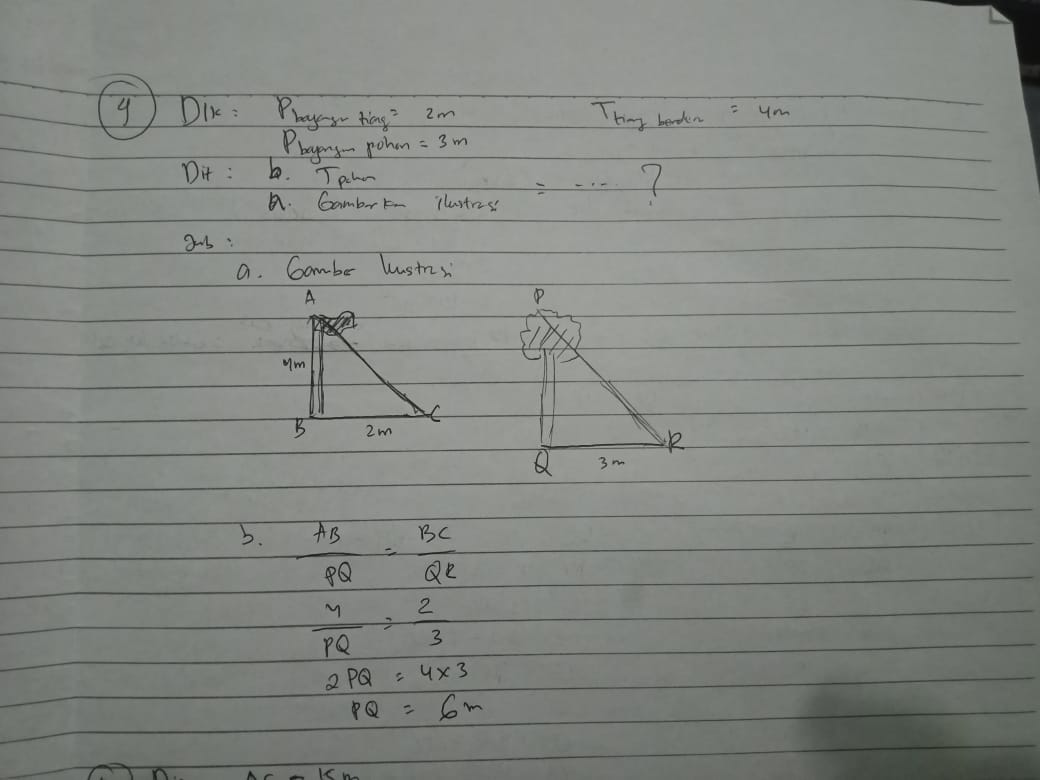 4 Dik : P bayangan tiang = 2m T tiang bendera = 4m
P bayangan pohon = 3m
Dit : b. T pohon = ..... ?
a. Gambarkan ilustrasi
Jwb :
a. Gambar Ilustrasi
A P
4m
B 2m C Q 3m R
b. AB/PQ = BC/QR
4/PQ = 2/3
2PQ = 4 x 3
PQ = 6m